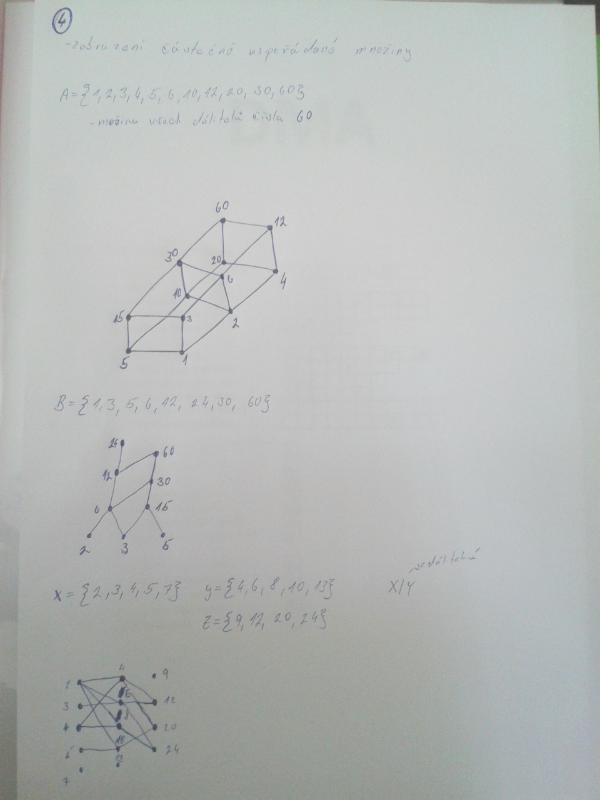 4
-zobrazení částečně uspořádané množiny
A={1,2,3,4,5,6,10,12,20,30,60}
-množina všech dělitelů čísla 60
60
12
30
20
6
4
10
15
3
2
5
1
B={1,3,5,6,12,24,30,60}
24
60
12
30
6
15
2
3
5
X={2,3,4,5,7} y={4,6,8,10,13} X/Y
Z={9,12,20,24}
2 4 9
3 6 12
4 8 20
10 24
7